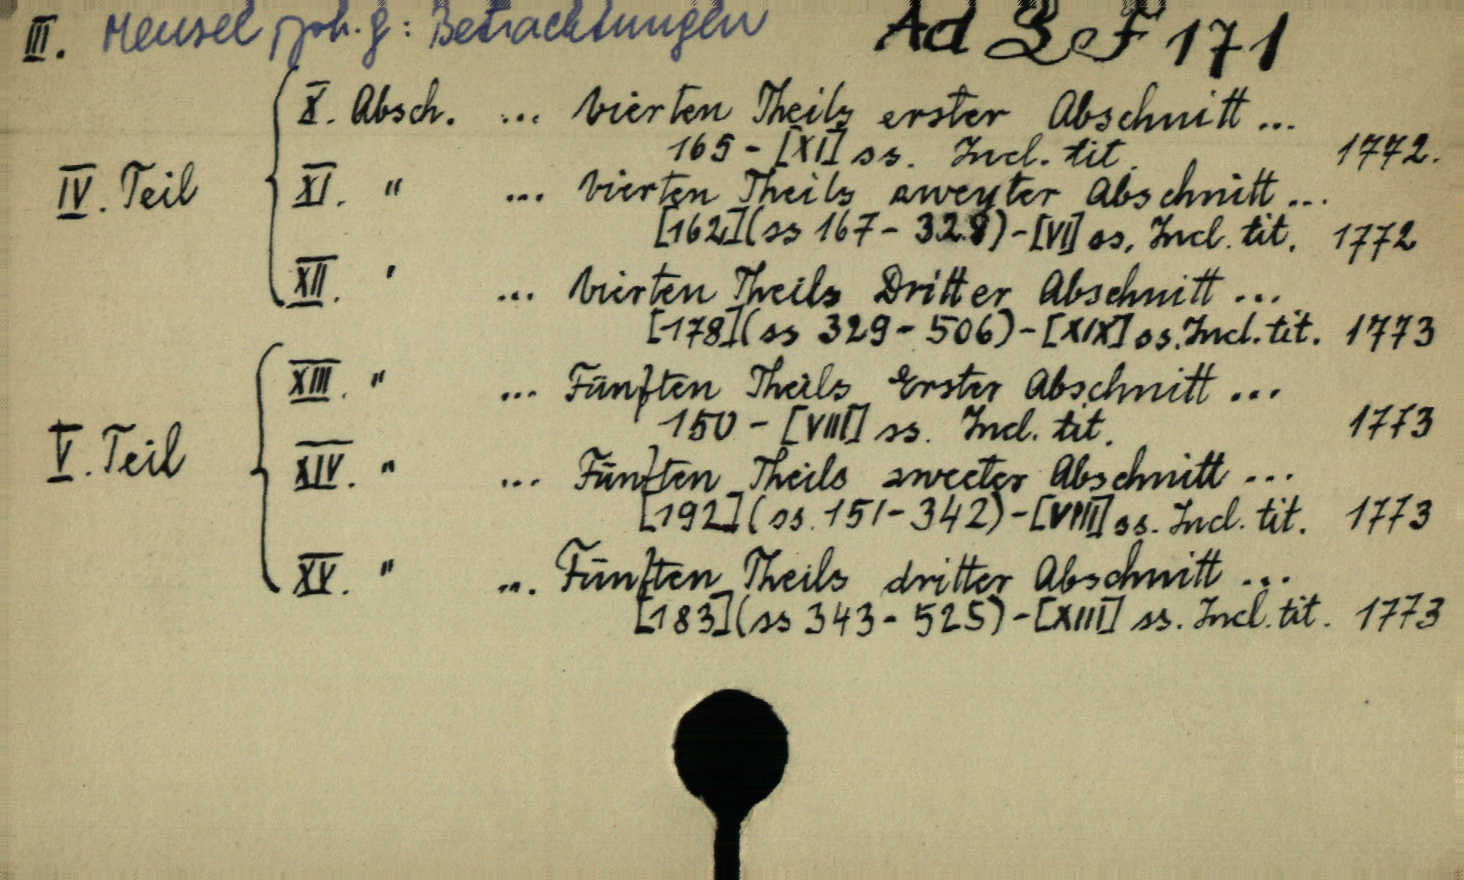 III. Meusel Joh. G: Betrachtungen Ad F 171
X. Absch. ... Vierten Theils erster Abschnitt ...
165 - [XI] ss. Incl. tit. 1772.
IV. Teil XI. " ... Vierten Theils zweyter Abschnitt ...
[162] (ss 167 - 328) - [VI] ss. Incl. tit. 1772
XII. " ... Vierten Theils Dritter Abschnitt ...
[178] (ss 329 - 506) - [XIX] ss. Incl. tit. 1773
XIII. " ... Fünften Theils Erster Abschnitt ...
150 - [VIII] ss. Incl. tit. 1773
V. Teil XIV. " ... Fünften Theils zweeter Abschnitt ...
[192] (ss. 151 - 342) - [VIII] ss. Incl. tit. 1773
XV. " ... Fünften Theils dritter Abschnitt ...
[183] (ss 343 - 525) - [XIII] ss. Incl. tit. 1773